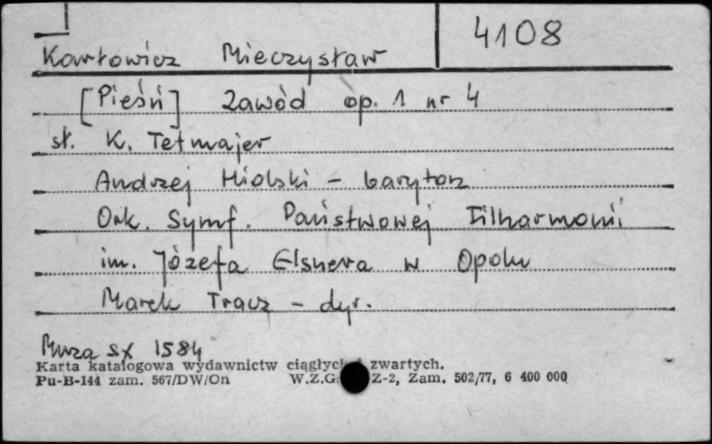 4108
Karłowicz Mieczysław
[Pieśń] Zawód op. 1 nr 4
sł. K. Tetmajer
Andrzej Hiolski - baryton
Ork. Symf. Państwowej Filharmonii
im. Józefa Elsnera w Opolu
Marek Tracz - dyr.
Muza SX 1584
Karta katalogowa wydawnictw ciągłych zwartych.
Pu-B-144 zam. 567/DW/On W.Z.G. Z-2, Zam. 502/77, 6 400 000